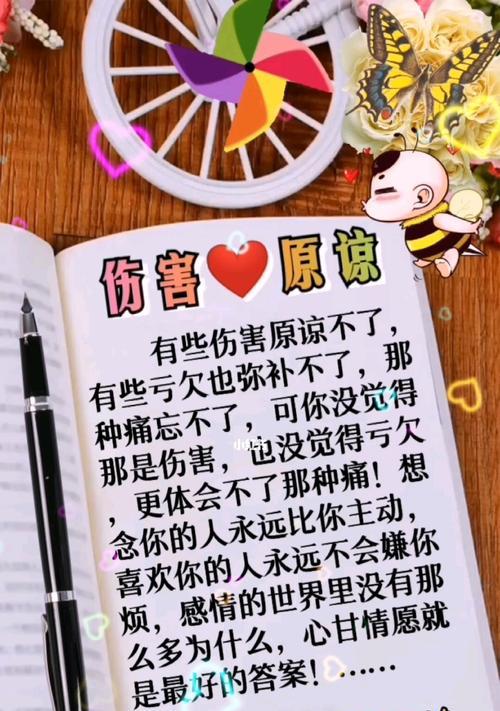 伤害❤️原谅
有些伤害原谅不了，
有些亏欠也弥补不了，那
种痛忘不了，可你没觉得
那是伤害，也没觉得亏欠
，更体会不了那种痛！想
念你的人永远比你主动，
喜欢你的人永远不会嫌你
烦，感情的世界里没有那
么多为什么，心甘情愿就
是最好的答案！……